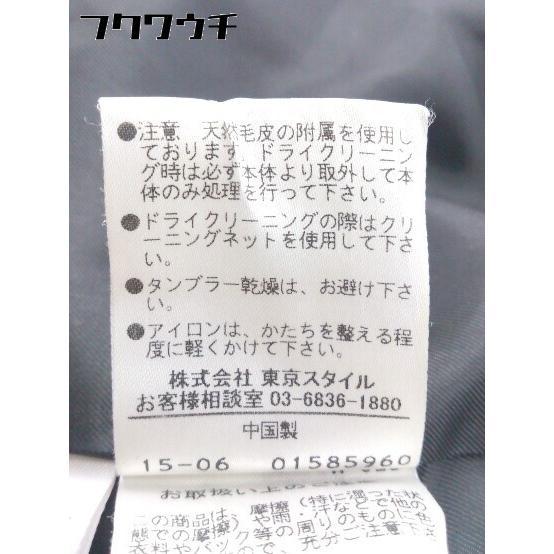 フクワウチ
●注意 天然毛皮の附属を使用し
ております ドライクリーニン
グ時は必ず本体より取外して本
体のみ処理を行って下さい。
●ドライクリーニングの際はクリ
ーニングネットを使用して下さ
い。
●タンブラー乾燥は、お避け下さ
い。
●アイロンは、かたちを整える程
度に軽くかけて下さい。
株式会社 東京スタイル
お客様相談室 03-6836-1880
中国製
15-06 01585960
お取扱い上のご注意
この商品は、摩擦(特に湿った状
態での摩擦)や雨・汗などで他の
衣料やバッグ等の周りのものに色